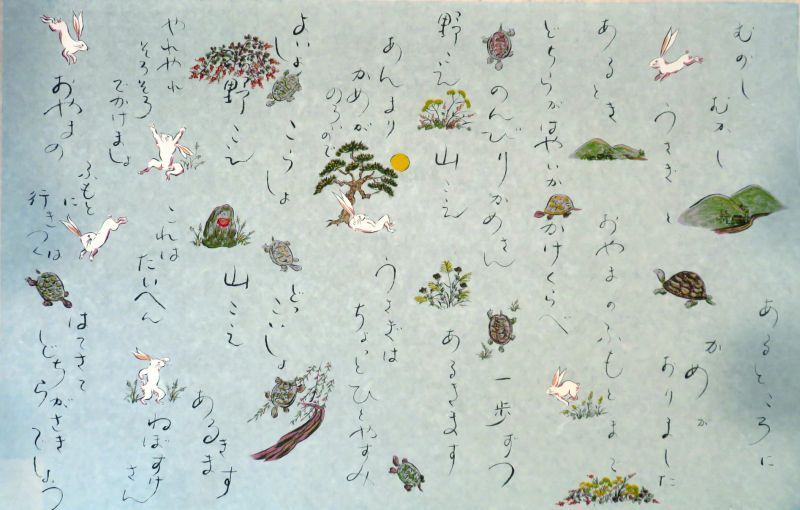 むかし むかし
あるところに
うさぎと
かめが
ありました
あるとき
おやまのふもとまで
どちらがはやいか
かけくらべ
のんびりかめさん
一歩ずつ
野こえ 山こえ
あるきます
あんまり
かめが
のろいので
うさぎは
ちょっとひとやすみ
よいしょ
こらしょ
どっこいしょ
野こえ
山こえ
あるきます
やれやれ
そろそろ
でかけましょ
これは
たいへん
ねぼすけ
さん
おやまの
ふもとに
行きつくは
はてさて
どちらがさき
でしょう